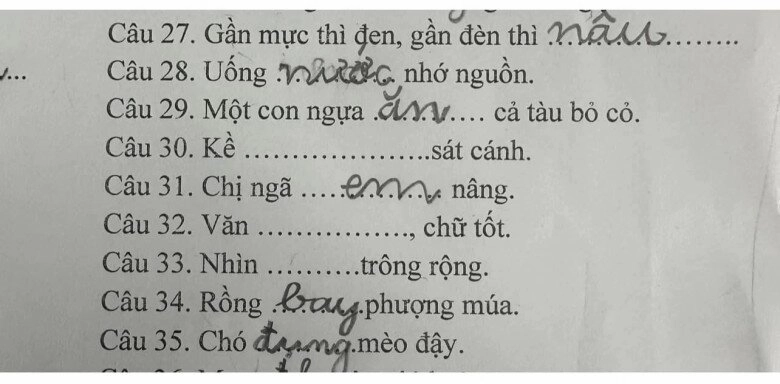 Câu 27. Gần mực thì đen, gần đèn thì nâu.........
Câu 28. Uống nước nhớ nguồn.
Câu 29. Một con ngựa ăn.... cả tàu bỏ cỏ.
Câu 30. Kề ....................sát cánh.
Câu 31. Chị ngã .....em. nâng.
Câu 32. Văn ................, chữ tốt.
Câu 33. Nhìn ..........trông rộng.
Câu 34. Rồng bay.phượng múa.
Câu 35. Chó đựng.mèo đậy.